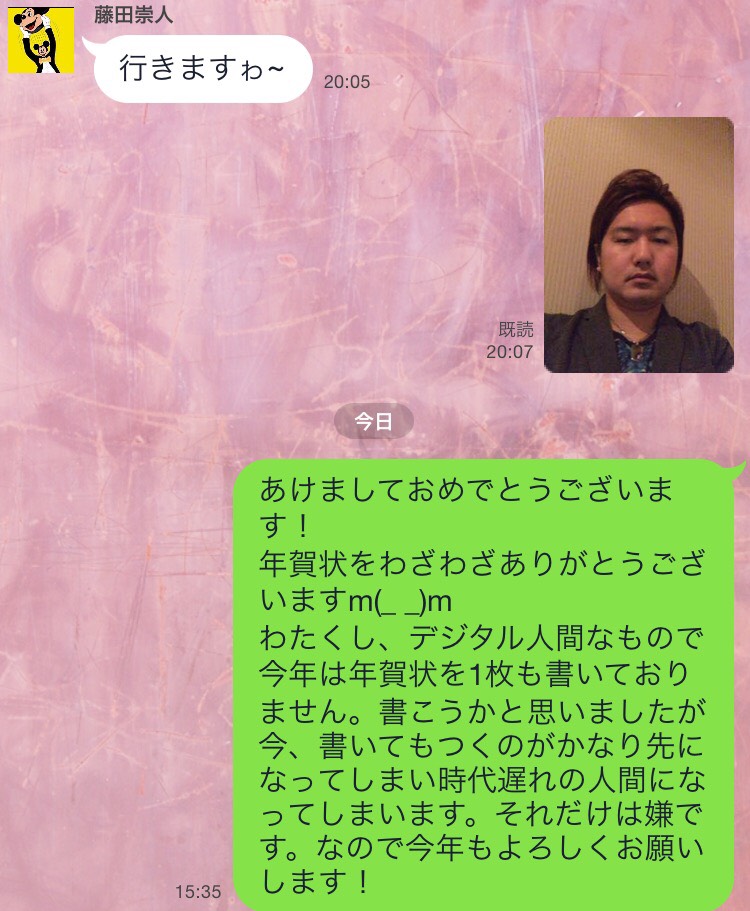 藤田崇人
行きますゎ~
20:05
既読
20:07
今日
あけましておめでとうございま
す！
年賀状をわざわざありがとうござ
いますm(_ _)m
わたくし、デジタル人間なもので
今年は年賀状を1枚も書いており
ません。書こうかと思いましたが
今、書いてもつくのがかなり先に
なってしまい時代遅れの人間にな
ってしまいます。それだけは嫌で
す。なので今年もよろしくお願い
します！
15:35